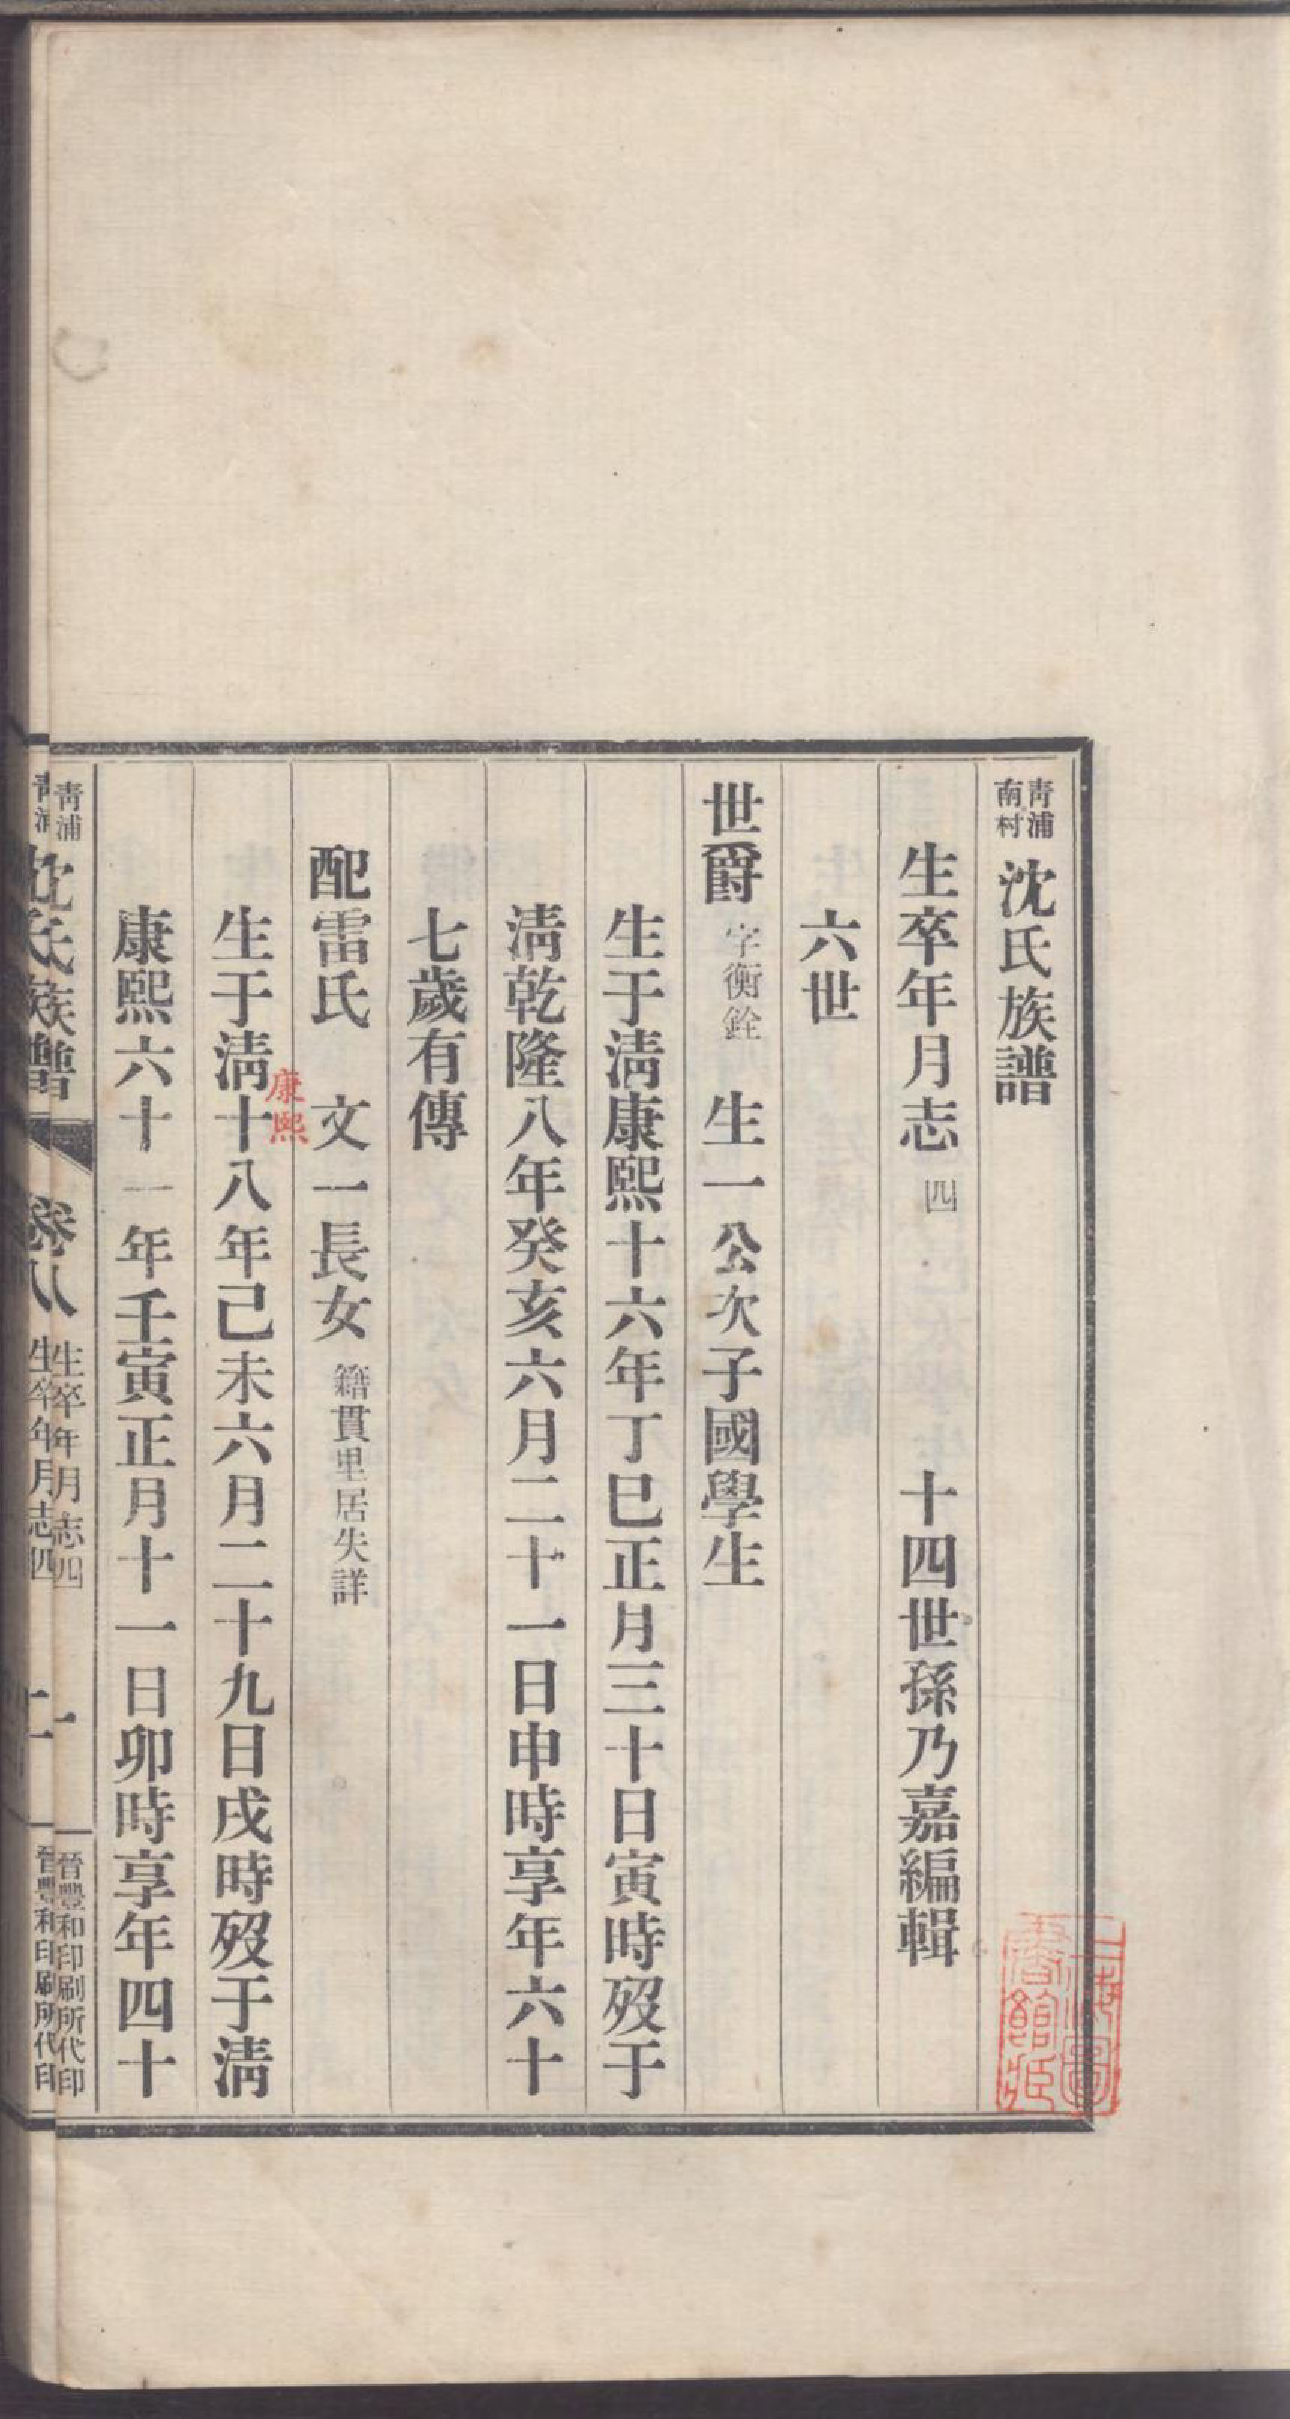 青浦南村沈氏族譜
生卒年月志四　十四世孫乃嘉編輯
六世
世爵字衡銓　生一公次子國學生
生于淸康熙十六年丁巳正月三十日寅時歿于
淸乾隆八年癸亥六月二十一日申時享年六十
七歲有傳
配雷氏　文一長女籍貫里居失詳
生于淸十八年己未六月二十九日戌時歿于淸
康熙
康熙六十一年壬寅正月十一日卯時享年四十
青浦
沈氏族譜　卷八　生卒年月志四　一　晉豐和印刷所代印
上海圖書館藏